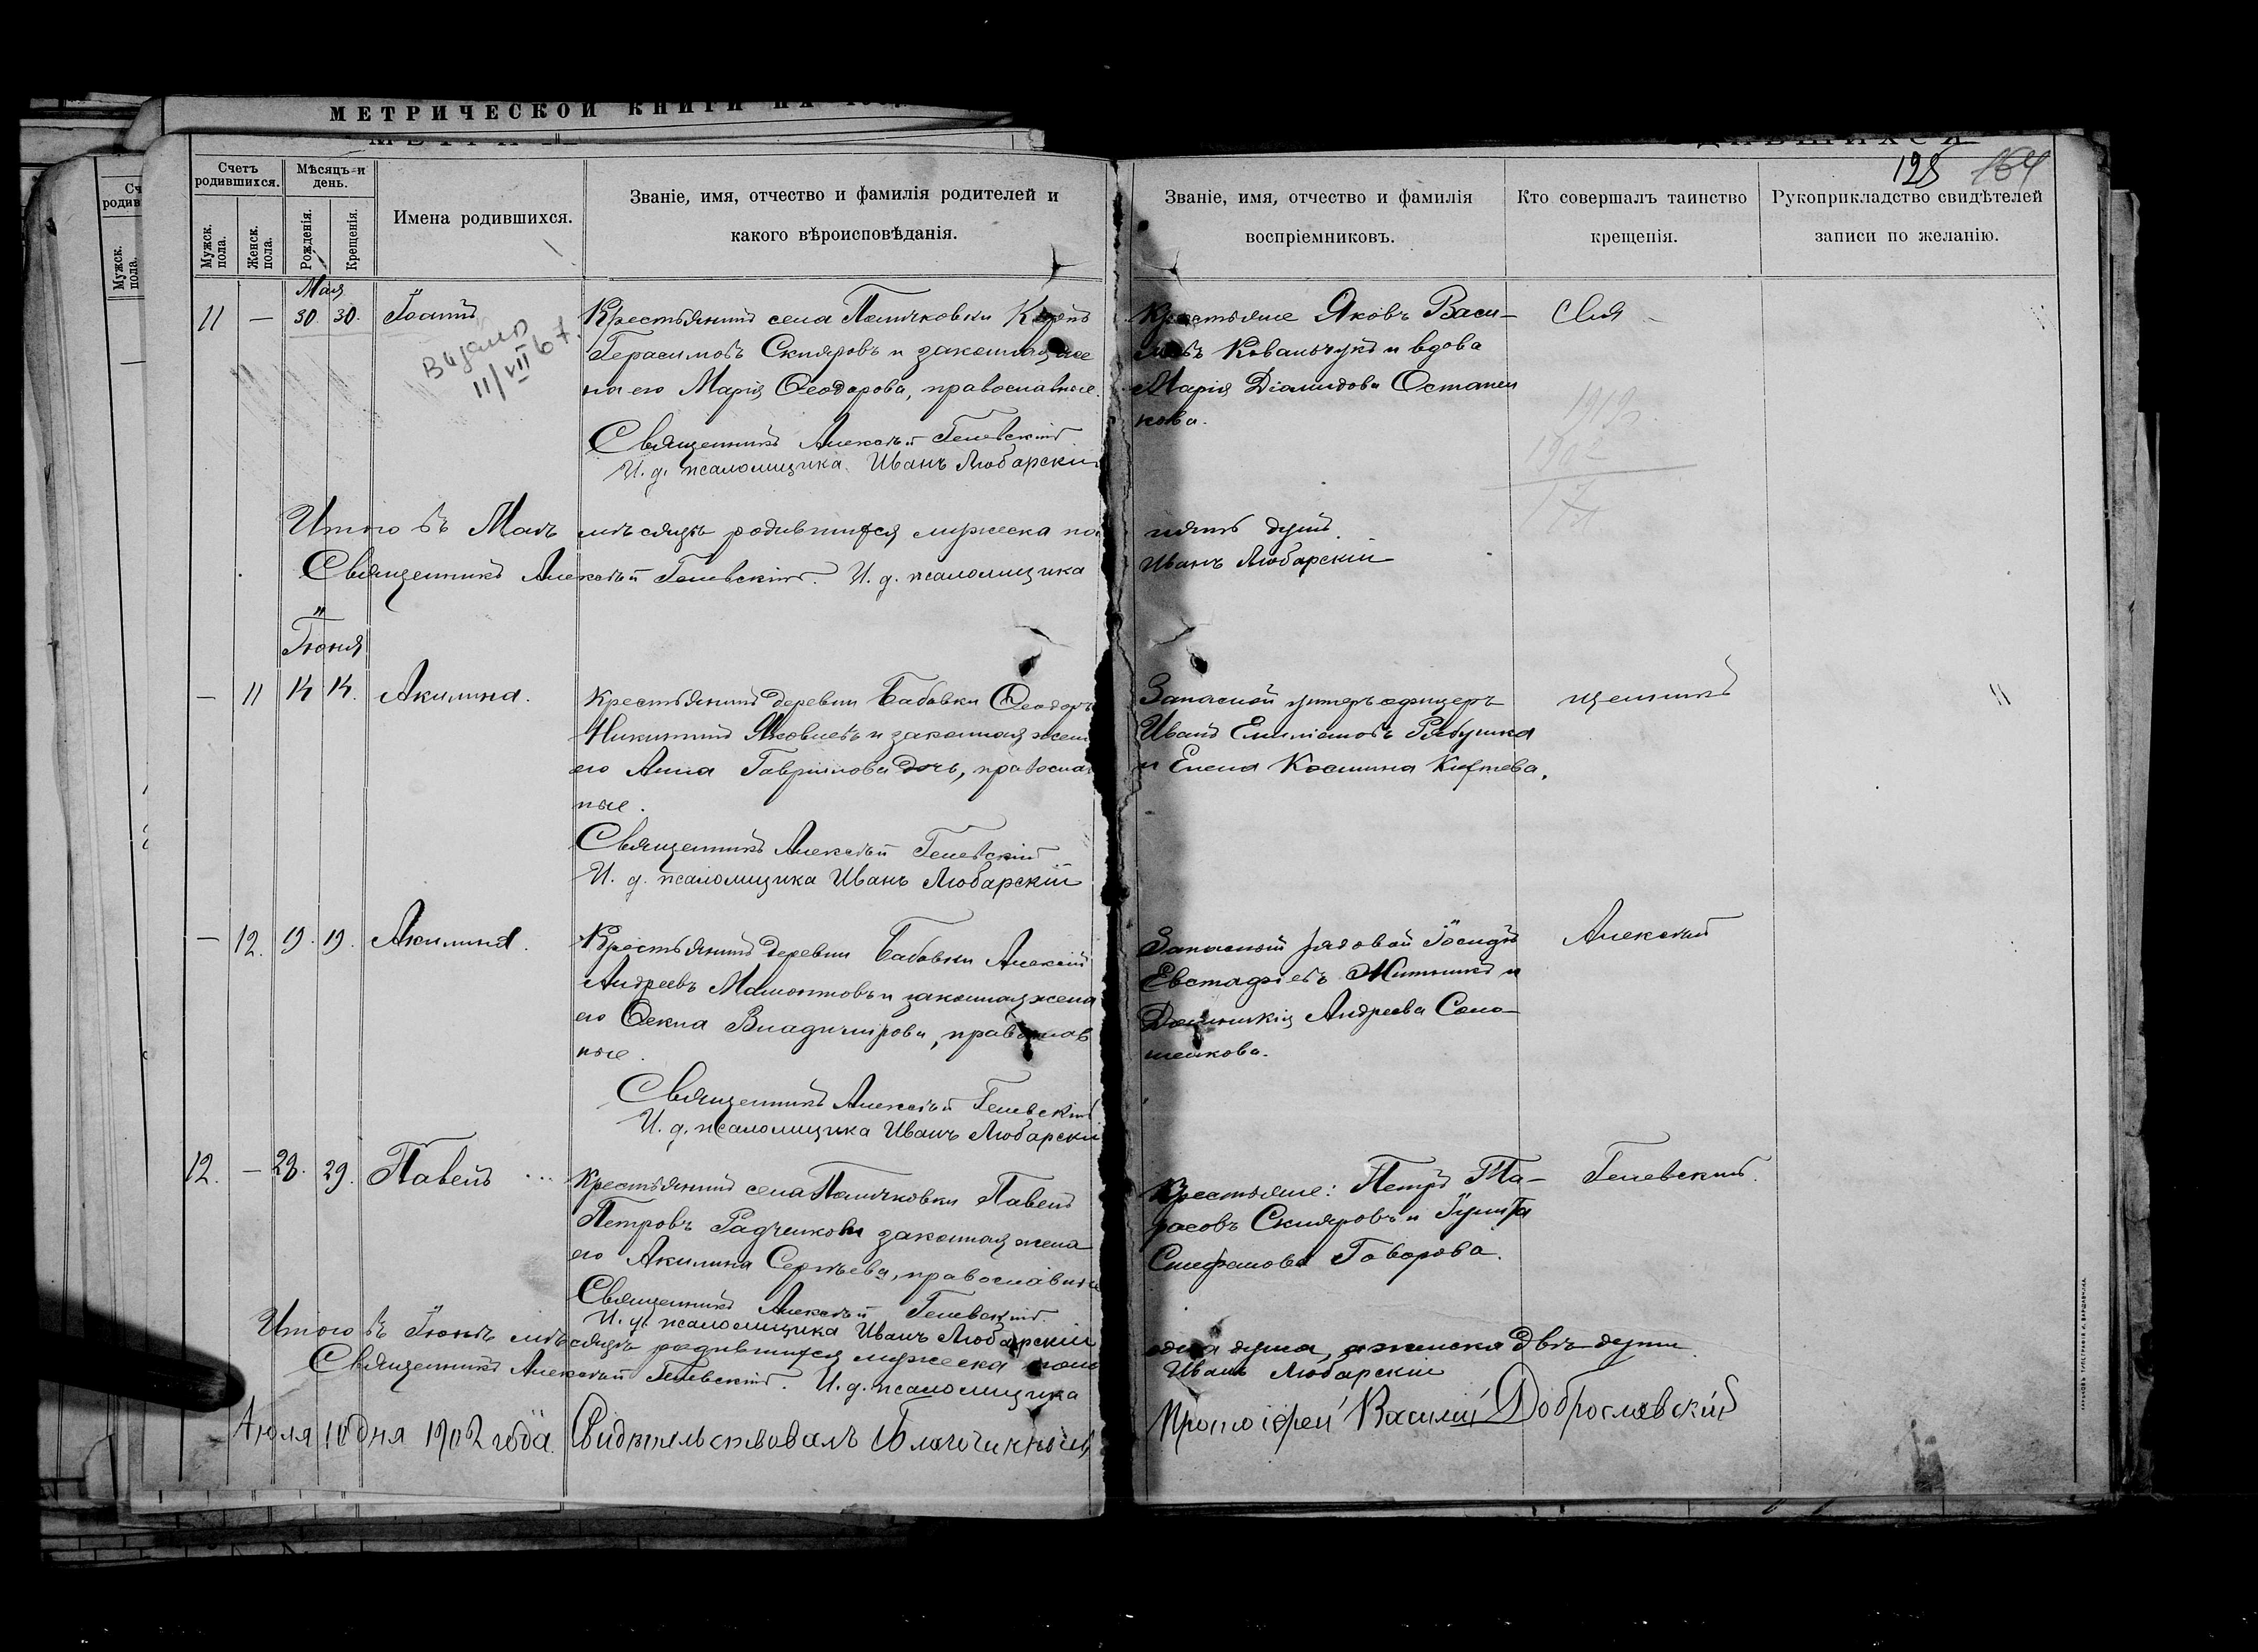 МЕТРИЧЕСКОЙ КНИГИ НА
125 164
Счетъ родившихся.
Мѣсяцъ и день.
Мужск. пола.
Женск. пола.
Рожденія.
Крещенія.
Имена родившихся.
Званіе, имя, отчество и фамилія родителей и
какого вѣроисповѣданія.
Званіе, имя, отчество и фамилія
воспріемниковъ.
Кто совершалъ таинство
крещенія.
Рукоприкладство свидѣтелей
записи по желанію.
Мая
11 — 30. 30. Іоаннъ
Выдано
11/VII 67.
Крестьянинъ села Поличковки
Герасимовъ Скляровъ и законная же
на его Марія Ѳеодорова, православные.
Священникъ Алексѣй Геневскій.
И. д. псаломщика Иванъ Любарскій
Крестьяне Яковъ Васи-
льевъ Ковальчукъ и вдова
Марія Діомидова Остапен
кова.
Свя-
1919
1902
17
Итого въ Маѣ мѣсяцѣ родившихся мужеска по
пять душъ.
Священникъ Алексѣй Геневскій. И. д. псаломщика
Иванъ Любарскій
Іюня
— 11 14 14. Акилина.
Крестьянинъ деревни Бабовки Ѳеодоръ
Никитинъ Яковлевъ и законная жена
его Анна Гаврилова дочь, православ
ные.
Священникъ Алексѣй Геневскій
И. д. псаломщика Иванъ Любарскій
Запасной унтеръ офицеръ
Иванъ Емиліановъ Рябушка
и Елена Космина
щенникъ
— 12. 19. 19. Акилина.
Крестьянинъ деревни Бабовки Алексій
Андреевъ Мамонтовъ и законная жена
его Ѳекла Владимірова, православ
ные.
Священникъ Алексѣй Геневскій
И. д. псаломщика Иванъ Любарскій
Запасный рядовой Іосифъ
Евстафіевъ Житникъ и
Домникія Андреева Соло-
шенкова.
Алексѣй
12. — 28. 29. Павелъ
Крестьянинъ села Поличковки Павелъ
Петровъ Радченковъ законная жена
его Акилина Сергѣева, православные
Священникъ Алексѣй Геневскій.
И. д. псаломщика Иванъ Любарскій
Крестьяне: Петръ Та-
расовъ Скляровъ и Іулитта
Стефанова Говорова.
Геневскій.
Итого въ Іюнѣ мѣсяцѣ родившихся мужеска пола
одна душа, а женска двѣ души
Священникъ Алексѣй Геневскій. И. д. псаломщика
Иванъ Любарскій
Іюля 10 дня 1902 года. Свидѣтельствовалъ Благочинный
Протоіерей Василій Доброславскій